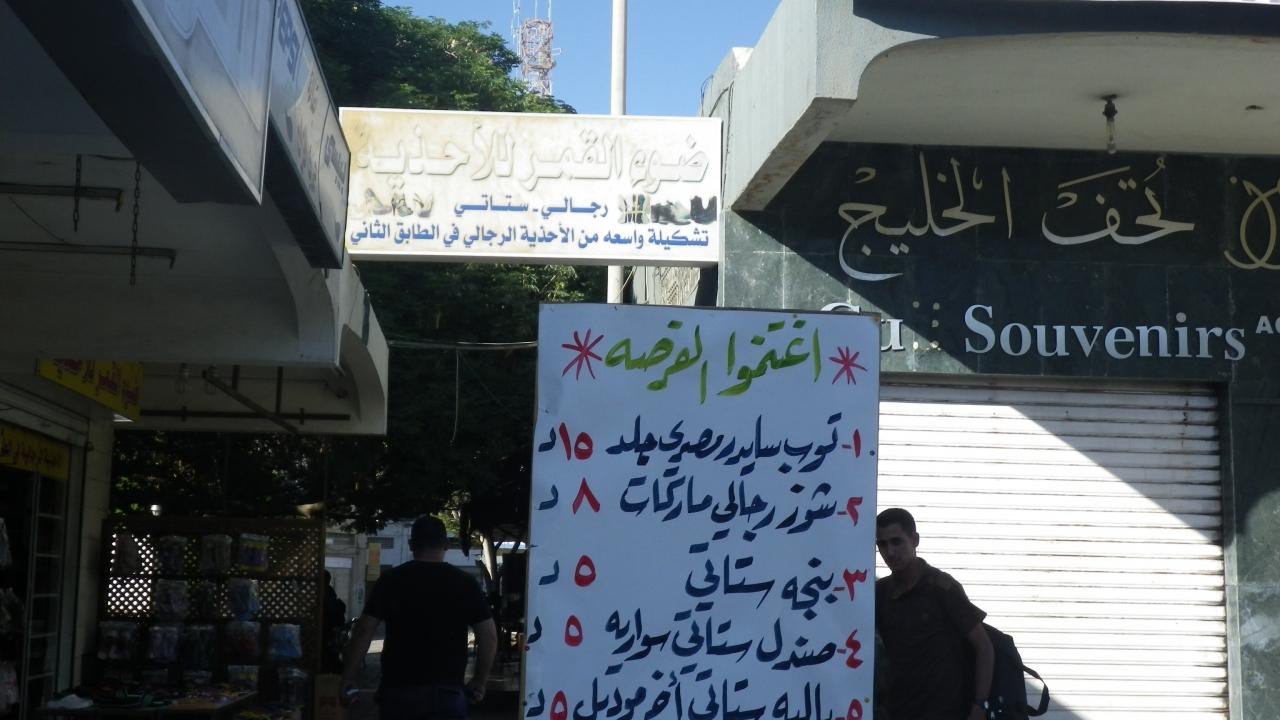 ضوء القمر للأحذية
رجالي - ستاتي
تشكيلة واسعه من الأحذية الرجالي في الطابق الثاني
تُحَف الخليج
Souvenirs
* اغتنموا الفرصه *
١- توب سايدر مصري جلد ١٥ د
٢- شوز رجالي ماركات ٨ د
٣- بنجه ستاتي ٥ د
٤- صندل ستاتي سواريه ٥ د
٥- باليه ستاتي أخر موديل ٥ د